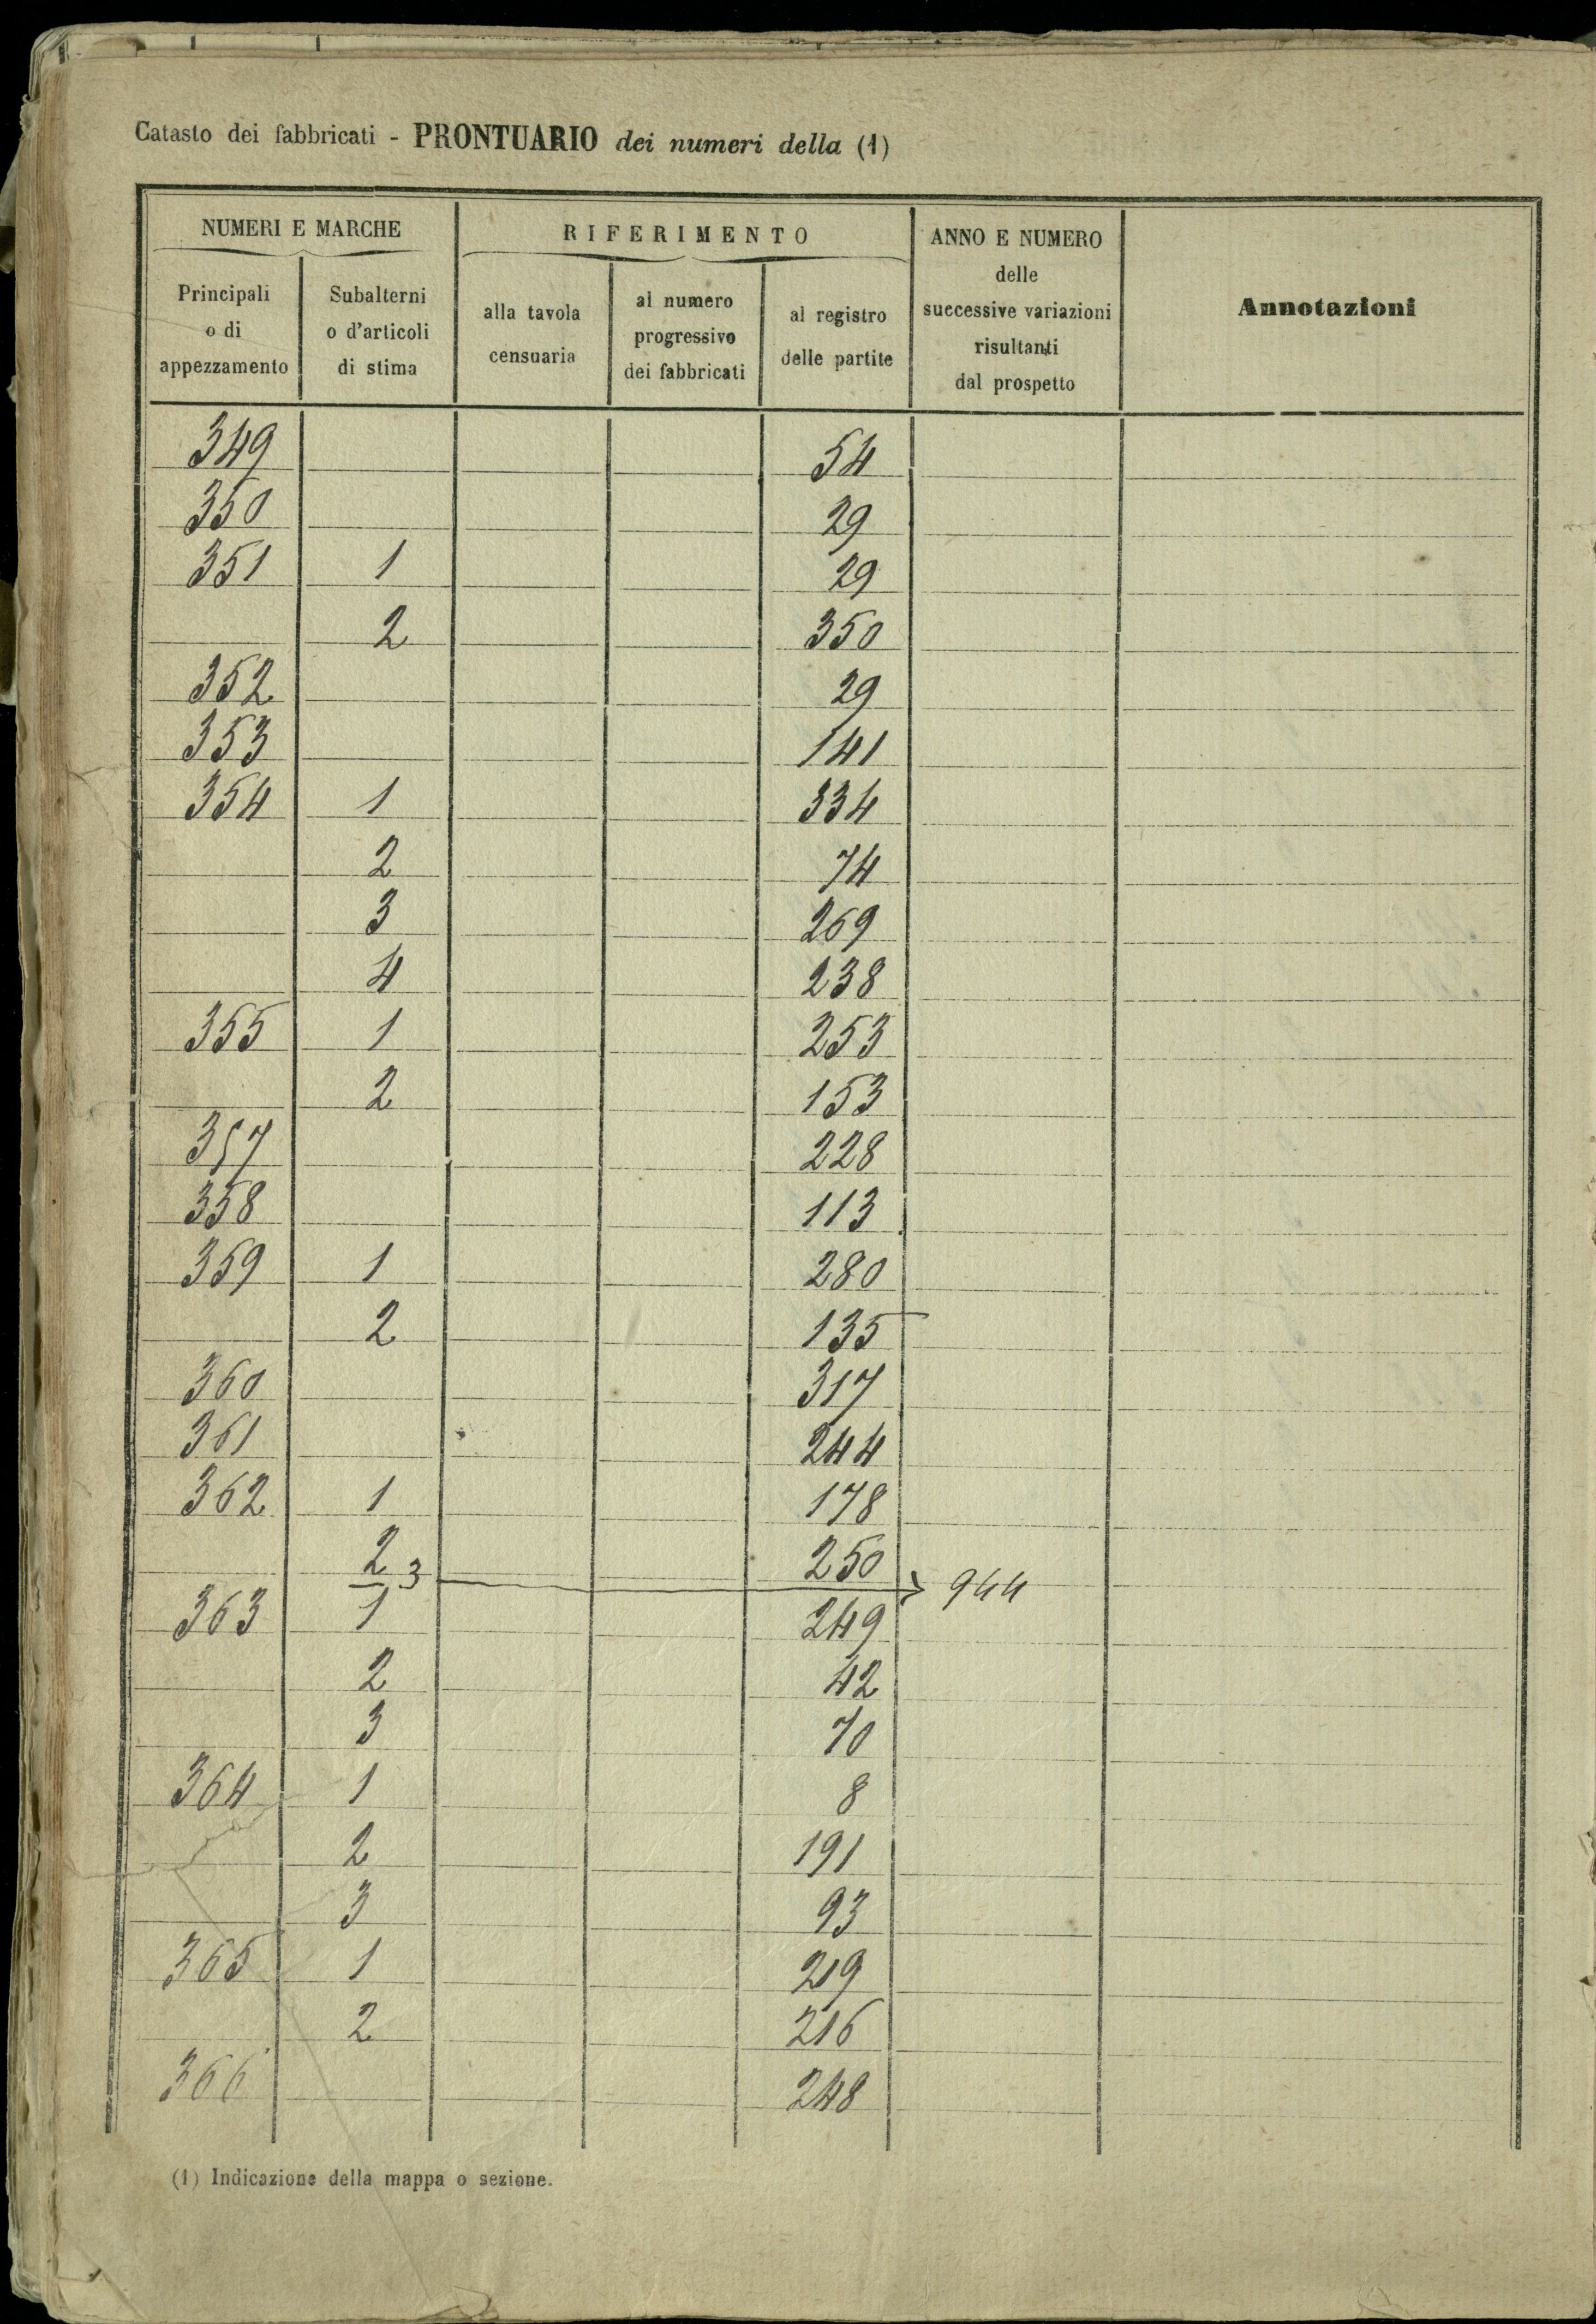 Catasto dei fabbricati - PRONTUARIO dei numeri della (1)
NUMERI E MARCHE
RIFERIMENTO
ANNO E NUMERO
delle
successive variazioni
risultanti
dal prospetto
Annotazioni
Principali
o di
appezzamento
Subalterni
o d'articoli
di stima
alla tavola
censuaria
al numero
progressivo
dei fabbricati
al registro
delle partite
349 54
350 29
351 1 29
2 350
352 29
353 141
354 1 334
2 74
3 269
4 238
355 1 253
2 153
357 228
358 113
359 1 280
2 135
360 317
361 244
362 1 178
2 250
3 944
363 1 249
2 42
3 70
364 1 8
2 191
3 93
365 1 219
2 216
366 248
(1) Indicazione della mappa o sezione.